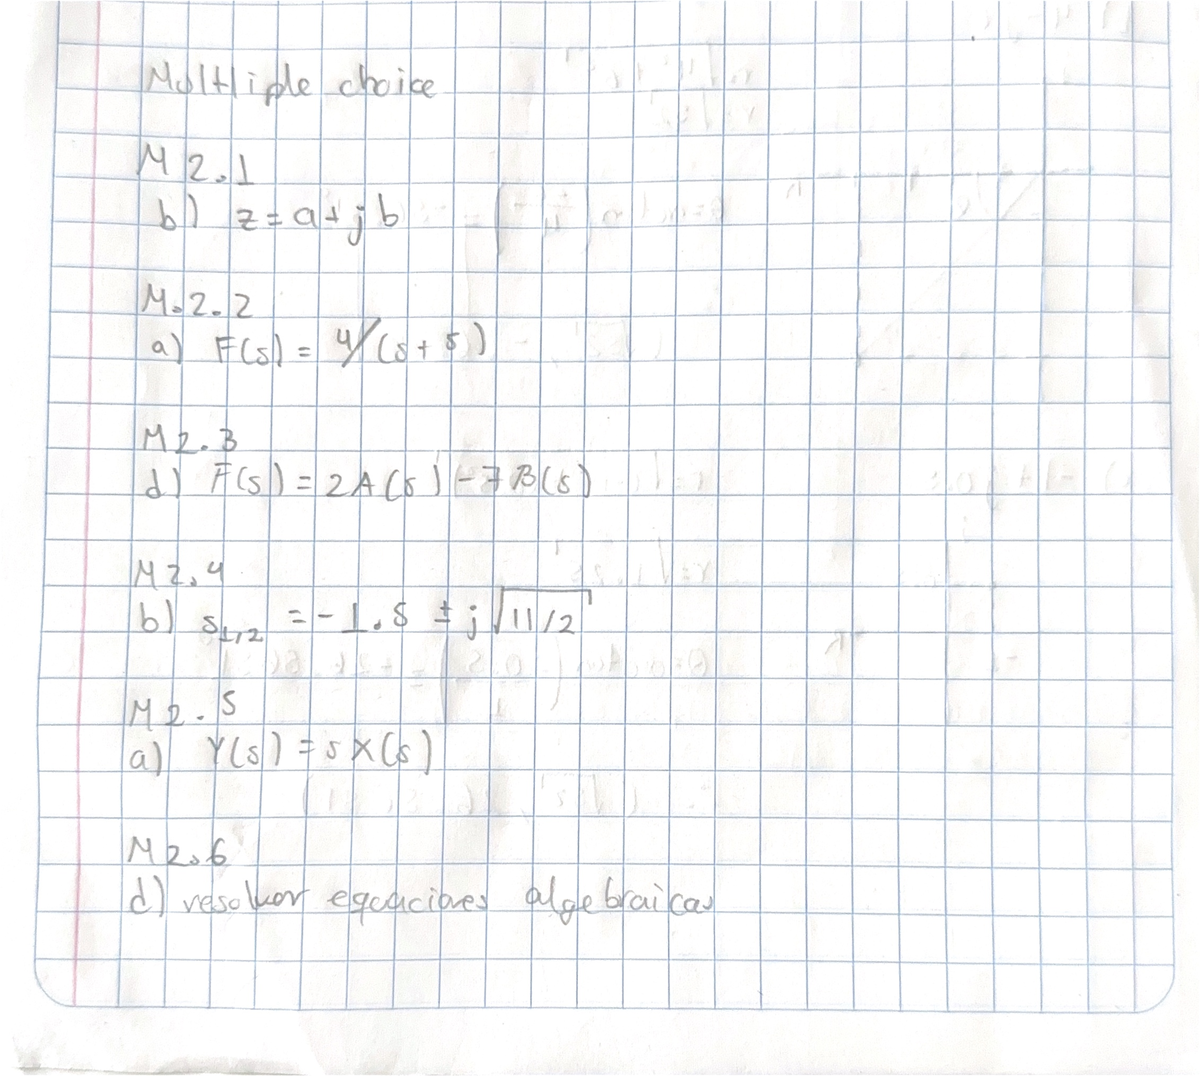 Multliple choice
M2.1
b) z = a + j b
M.2.2
a) F(s) = 4/(s + 5)
M2.3
d) F(s) = 2A(s) - 7B(s)
M2.4
b) s1,2 = -1.5 ± j√11/2
M2.5
a) Y(s) = s X(s)
M2.6
d) resolver equaciones algebraicas